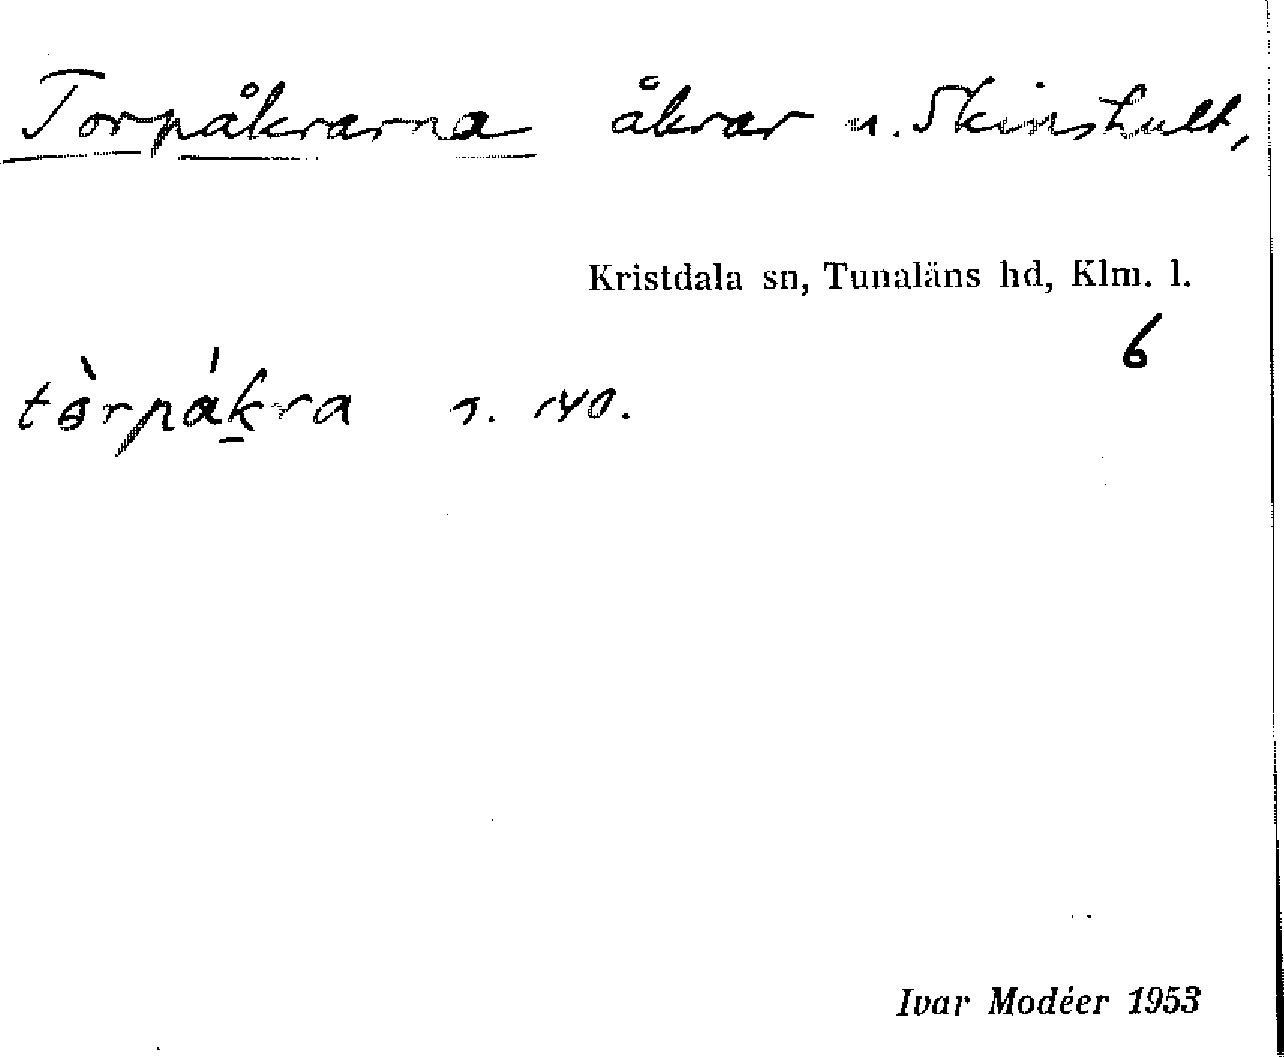 Torpåkrarna åkrar u. Skinshult,
Kristdala sn, Tunaläns hd, Klm. l.
6
tòrpákra s. 140.
Ivar Modéer 1953